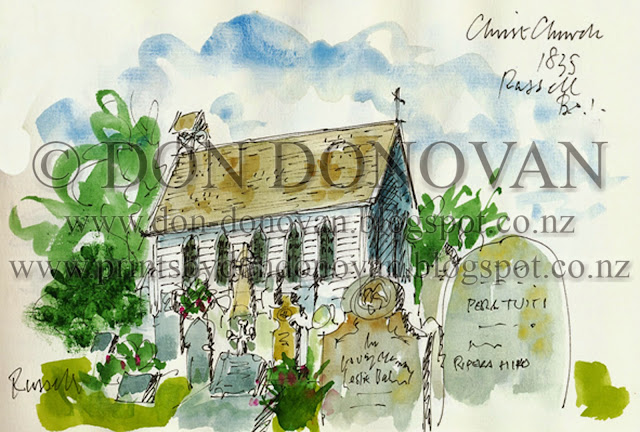 Christ Church
1835
Russell
© DON DONOVAN
www.don-donovan.blogspot.co.nz
www.printsbydondonovan.blogspot.co.nz
PERATUITI
RIPEKA HIKO
In
Loving
Leslie
Russell